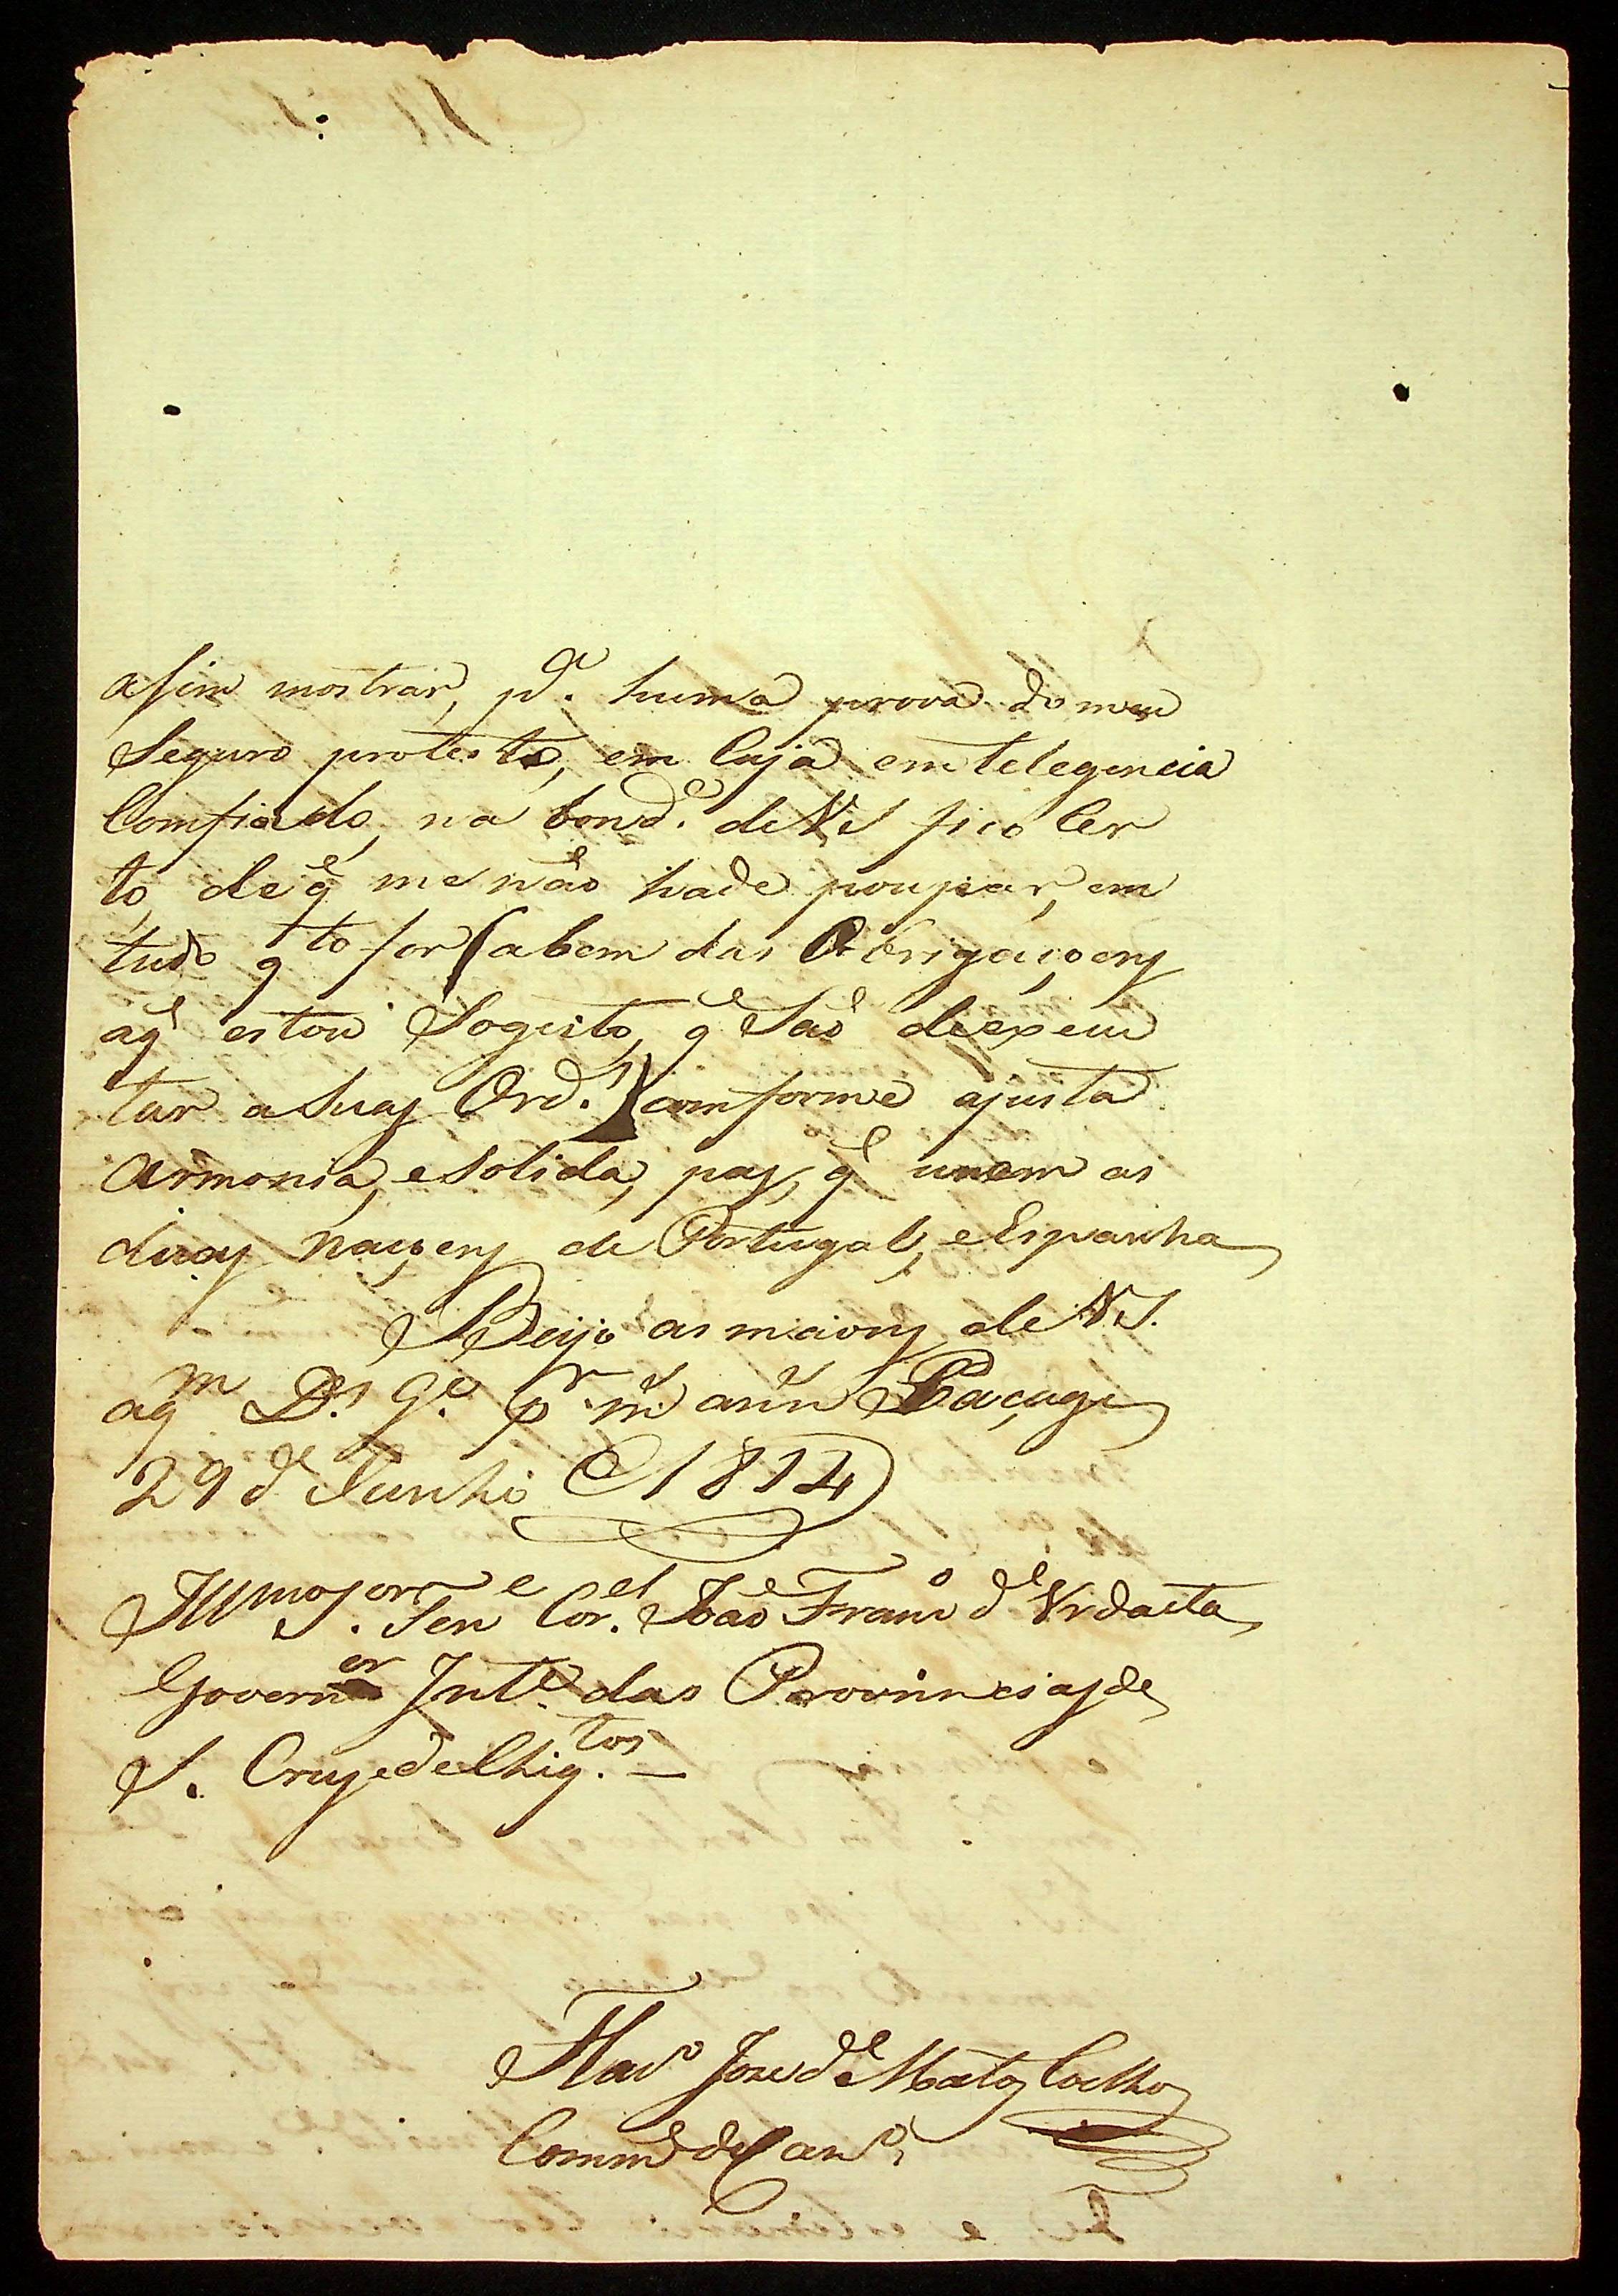 asim mostrar, p.ª huma prova do meu
Seguro protesto, em Cuja emtelegencia
Comfiado, na bond.e de VS fico Cer
to, de q̃ me não hade poupar, em
tudo q.to for (abem das Obrigaçoens
aq̃ estou Sogeito, q̃ São de exeau
tar a Suas Ord.s) comforme ajusta
Armonia, e Solida, pas, q̃ unem as
duas Naçoens de Portugal, e Espanha
Beijo as maons de VS.
aq.m D.s G.e p.r m.s ann.s Paçage
29 d.e Junho 1814
Ill.mo S.or Ten.e Cor.el João Fran.co d.e Vrdaeta
Govern.or Int.º das Provinncias de
S. Crus e de Chiq.tos
Jose d.e Mattos Coelho
Comm.de